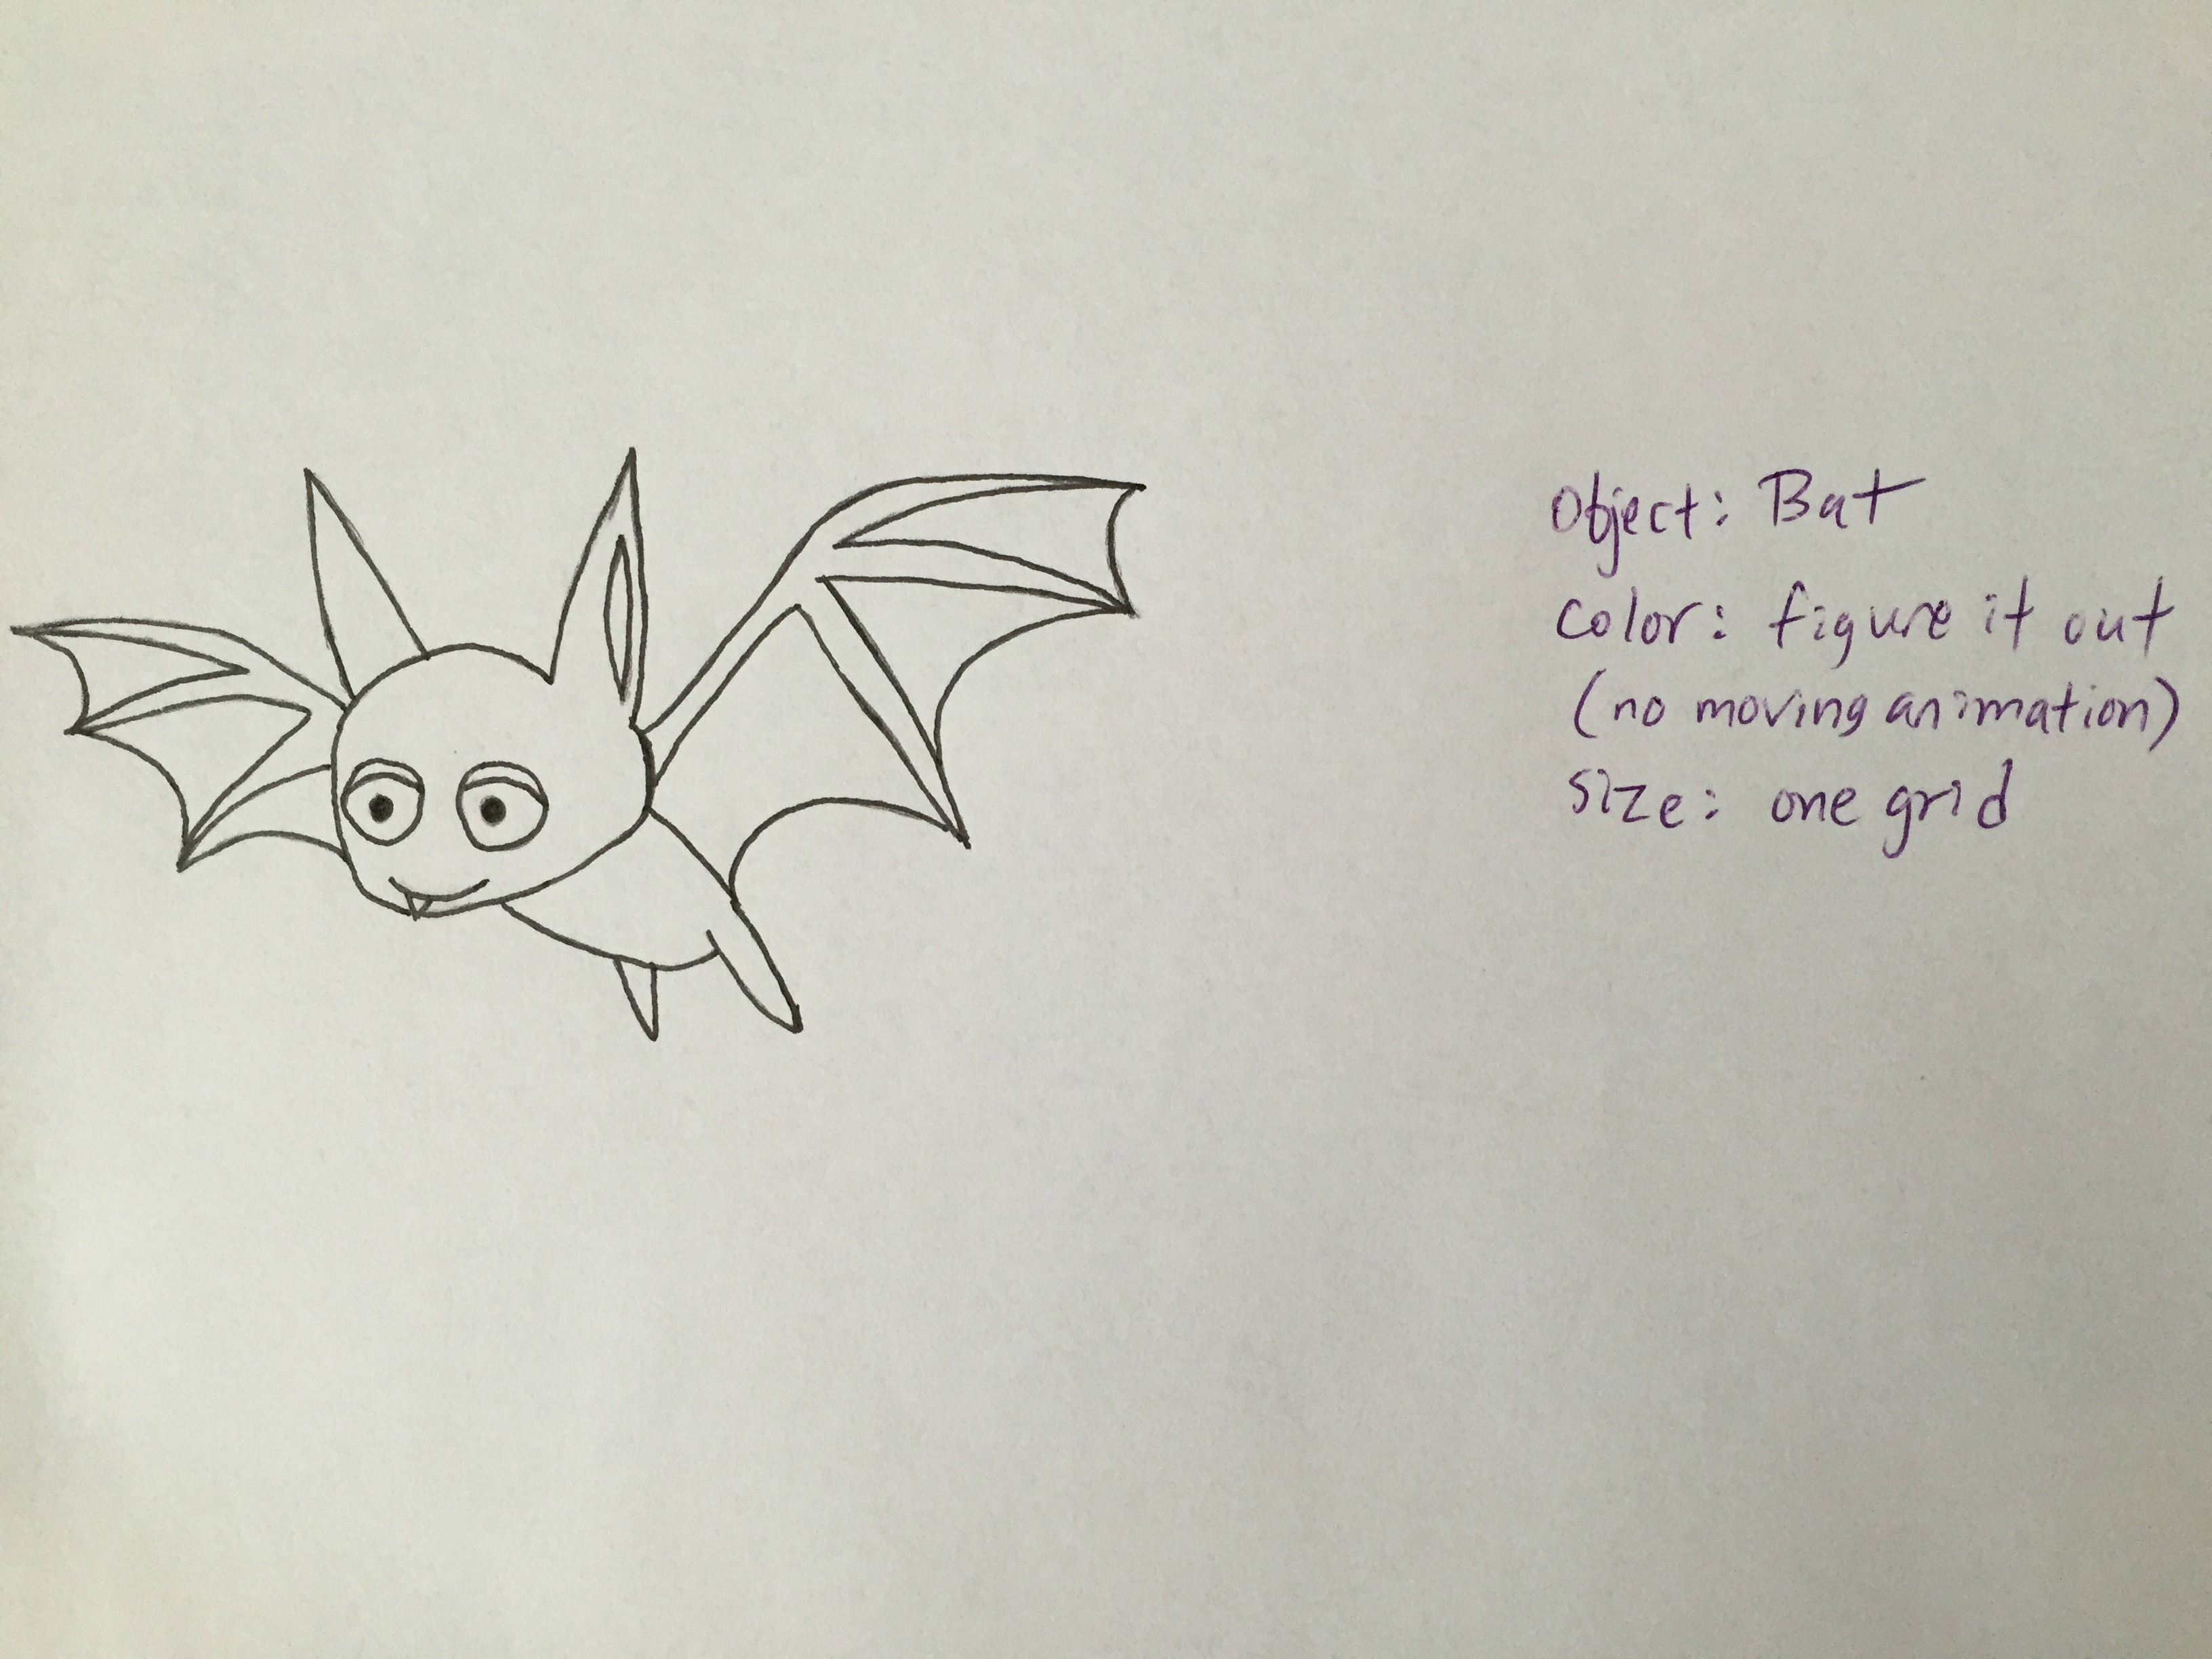 Object: Bat
Color: figure it out
(no moving animation)
Size: one grid